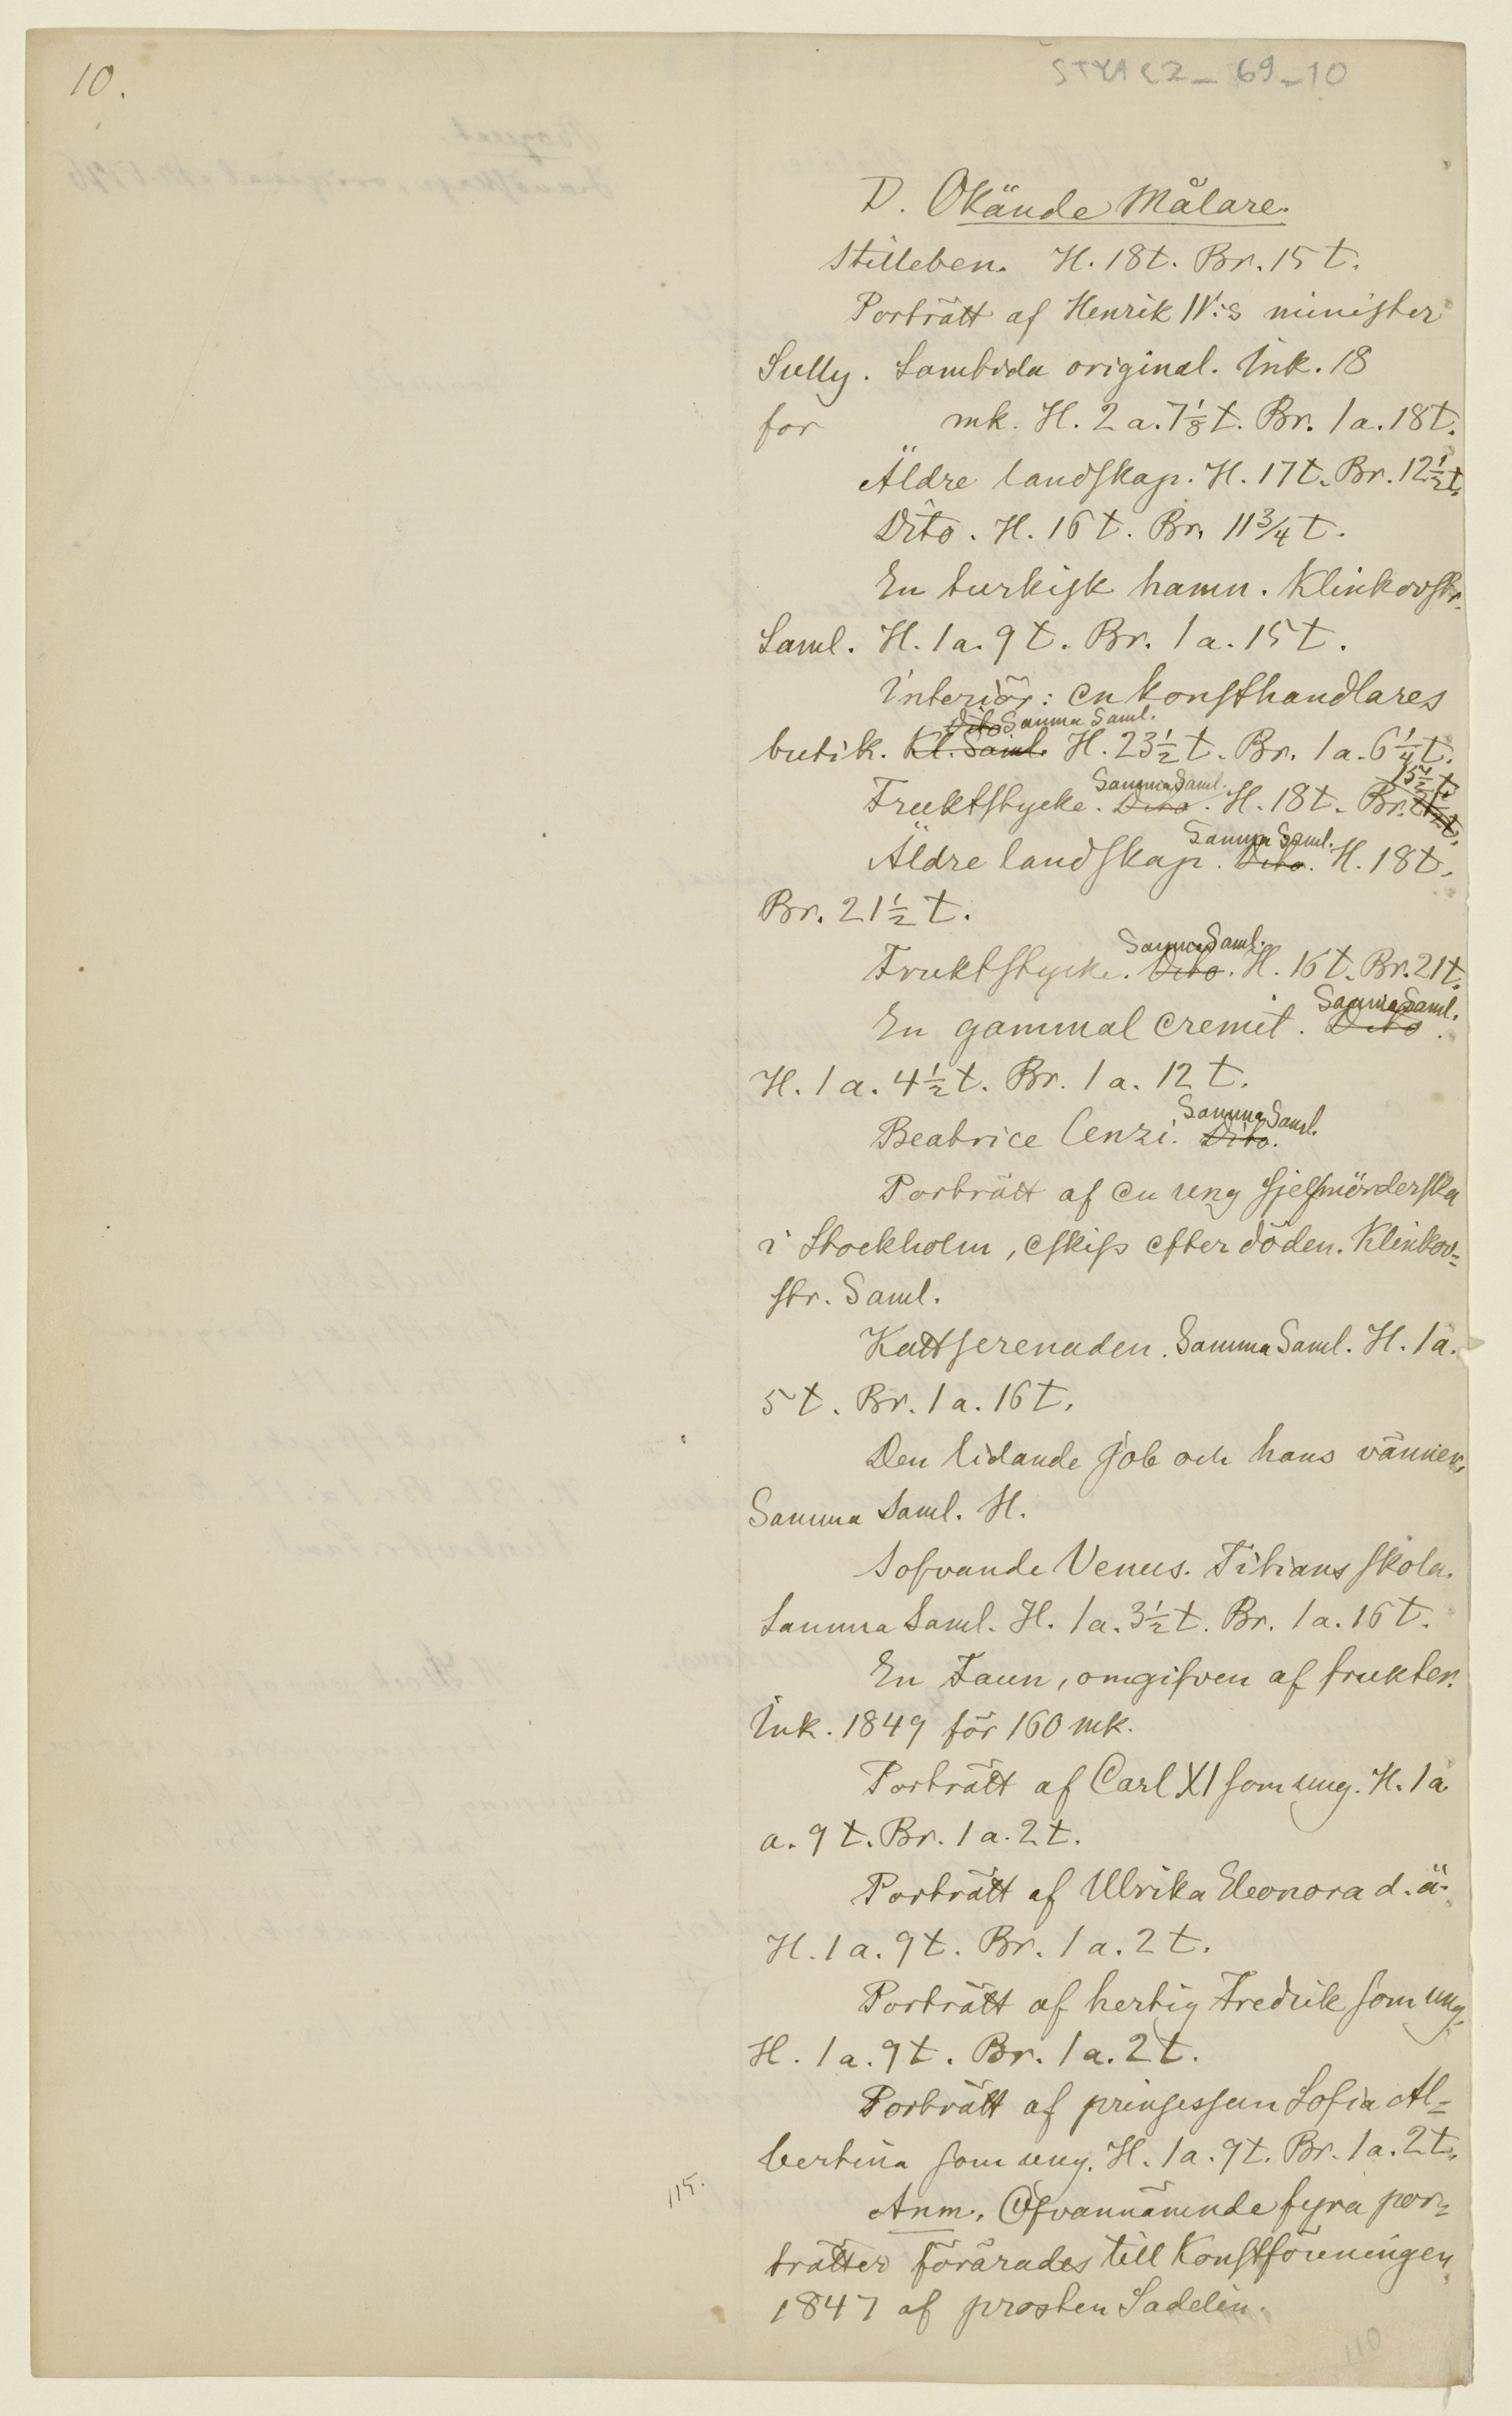 10.
STYA C2 _ 69 _ 10
D. Okände Målare.
Stilleben. H. 18 t. Br. 15 t.
Porträtt af Henrik IV:s minister
Sully. Sambida original. Ink. 18
for mk. H. 2 a. 7 1/8 t. Br. 1 a. 18 t.
Äldre landskap. H. 17 t. Br. 12 1/2 t.
Dito. H. 16 t. Br. 11 3/4 t.
En turkisk hamn. Klinkovstr.
Saml. H. 1 a. 9 t. Br. 1 a. 15 t.
Interiör: en konsthandlares
Dito Samma Saml.
butik. Kl. Saml. H. 23 1/2 t. Br. 1 a. 6 1/4 t.
Samma Saml. 15 1/2 t.
Fruktstycke. Dito. H. 18 t. Br. 21 1/2 t.
Samma Saml.
Äldre landskap. Dito. H. 18 t.
Br. 21 1/2 t.
Samma Saml.
Fruktstycke. Dito. H. 16 t. Br. 21 t.
Samma Saml.
En gammal eremit. Dito.
H. 1 a. 4 1/2 t. Br. 1 a. 12 t.
Samma Saml.
Beatrice Cenzi. Dito.
Porträtt af en ung sjelfmörderska
i Stockholm, eskiss efter döden. Klinkov=
str. Saml.
Kattserenaden. Samma Saml. H. 1 a.
5 t. Br. 1 a. 16 t.
Den lidande Job och hans vänner.
Samma Saml. H.
Sofvande Venus. Titians skola.
Samma Saml. H. 1 a. 3 1/2 t. Br. 1 a. 16 t.
En Faun, omgifven af frukter.
Ink. 1849 för 160 mk.
Porträtt af Carl XI som ung. H. 1 a
a. 9 t. Br. 1 a. 2 t.
Porträtt af Ulrika Eleonora d. ä.
H. 1 a. 9 t. Br. 1 a. 2 t.
Porträtt af hertig Fredrik som ung
H. 1 a. 9 t. Br. 1 a. 2 t.
Porträtt af prinsessan Sofia Al=
bertina som ung. H. 1 a. 9 t. Br. 1 a. 2 t.
115.
Anm. Ofvannämnde fyra por=
trätter förärades till Konstföreningen
1847 af prosten Sadelin.
110